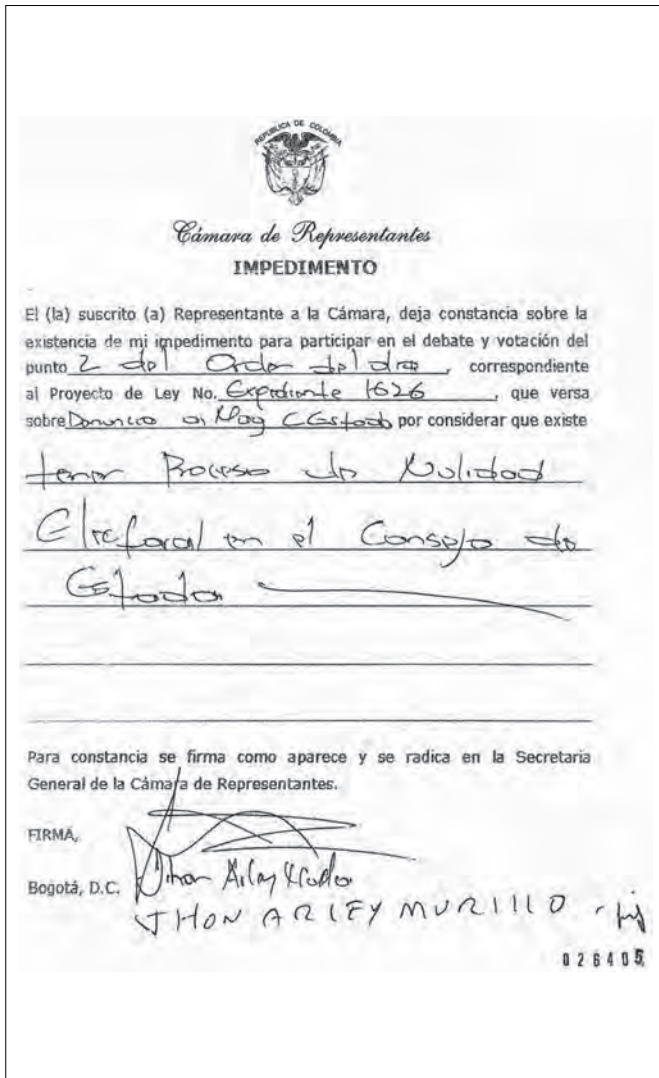 REPUBLICA DE COLOMBIA
Cámara de Representantes
IMPEDIMENTO
El (la) suscrito (a) Representante a la Cámara, deja constancia sobre la
existencia de mi impedimento para participar en el debate y votación del
punto 2 del Orden del dia, correspondiente
al Proyecto de Ley No. Expediente 1626, que versa
sobre Denuncia a Mag C Estado por considerar que existe
tener Proceso de Nulidad
Electoral en el Consejo de
Estado
Para constancia se firma como aparece y se radica en la Secretaria
General de la Cámara de Representantes.
FIRMA,
Bogotá, D.C. Jhon Arley Murillo
JHON ARLEY MURILLO
026405